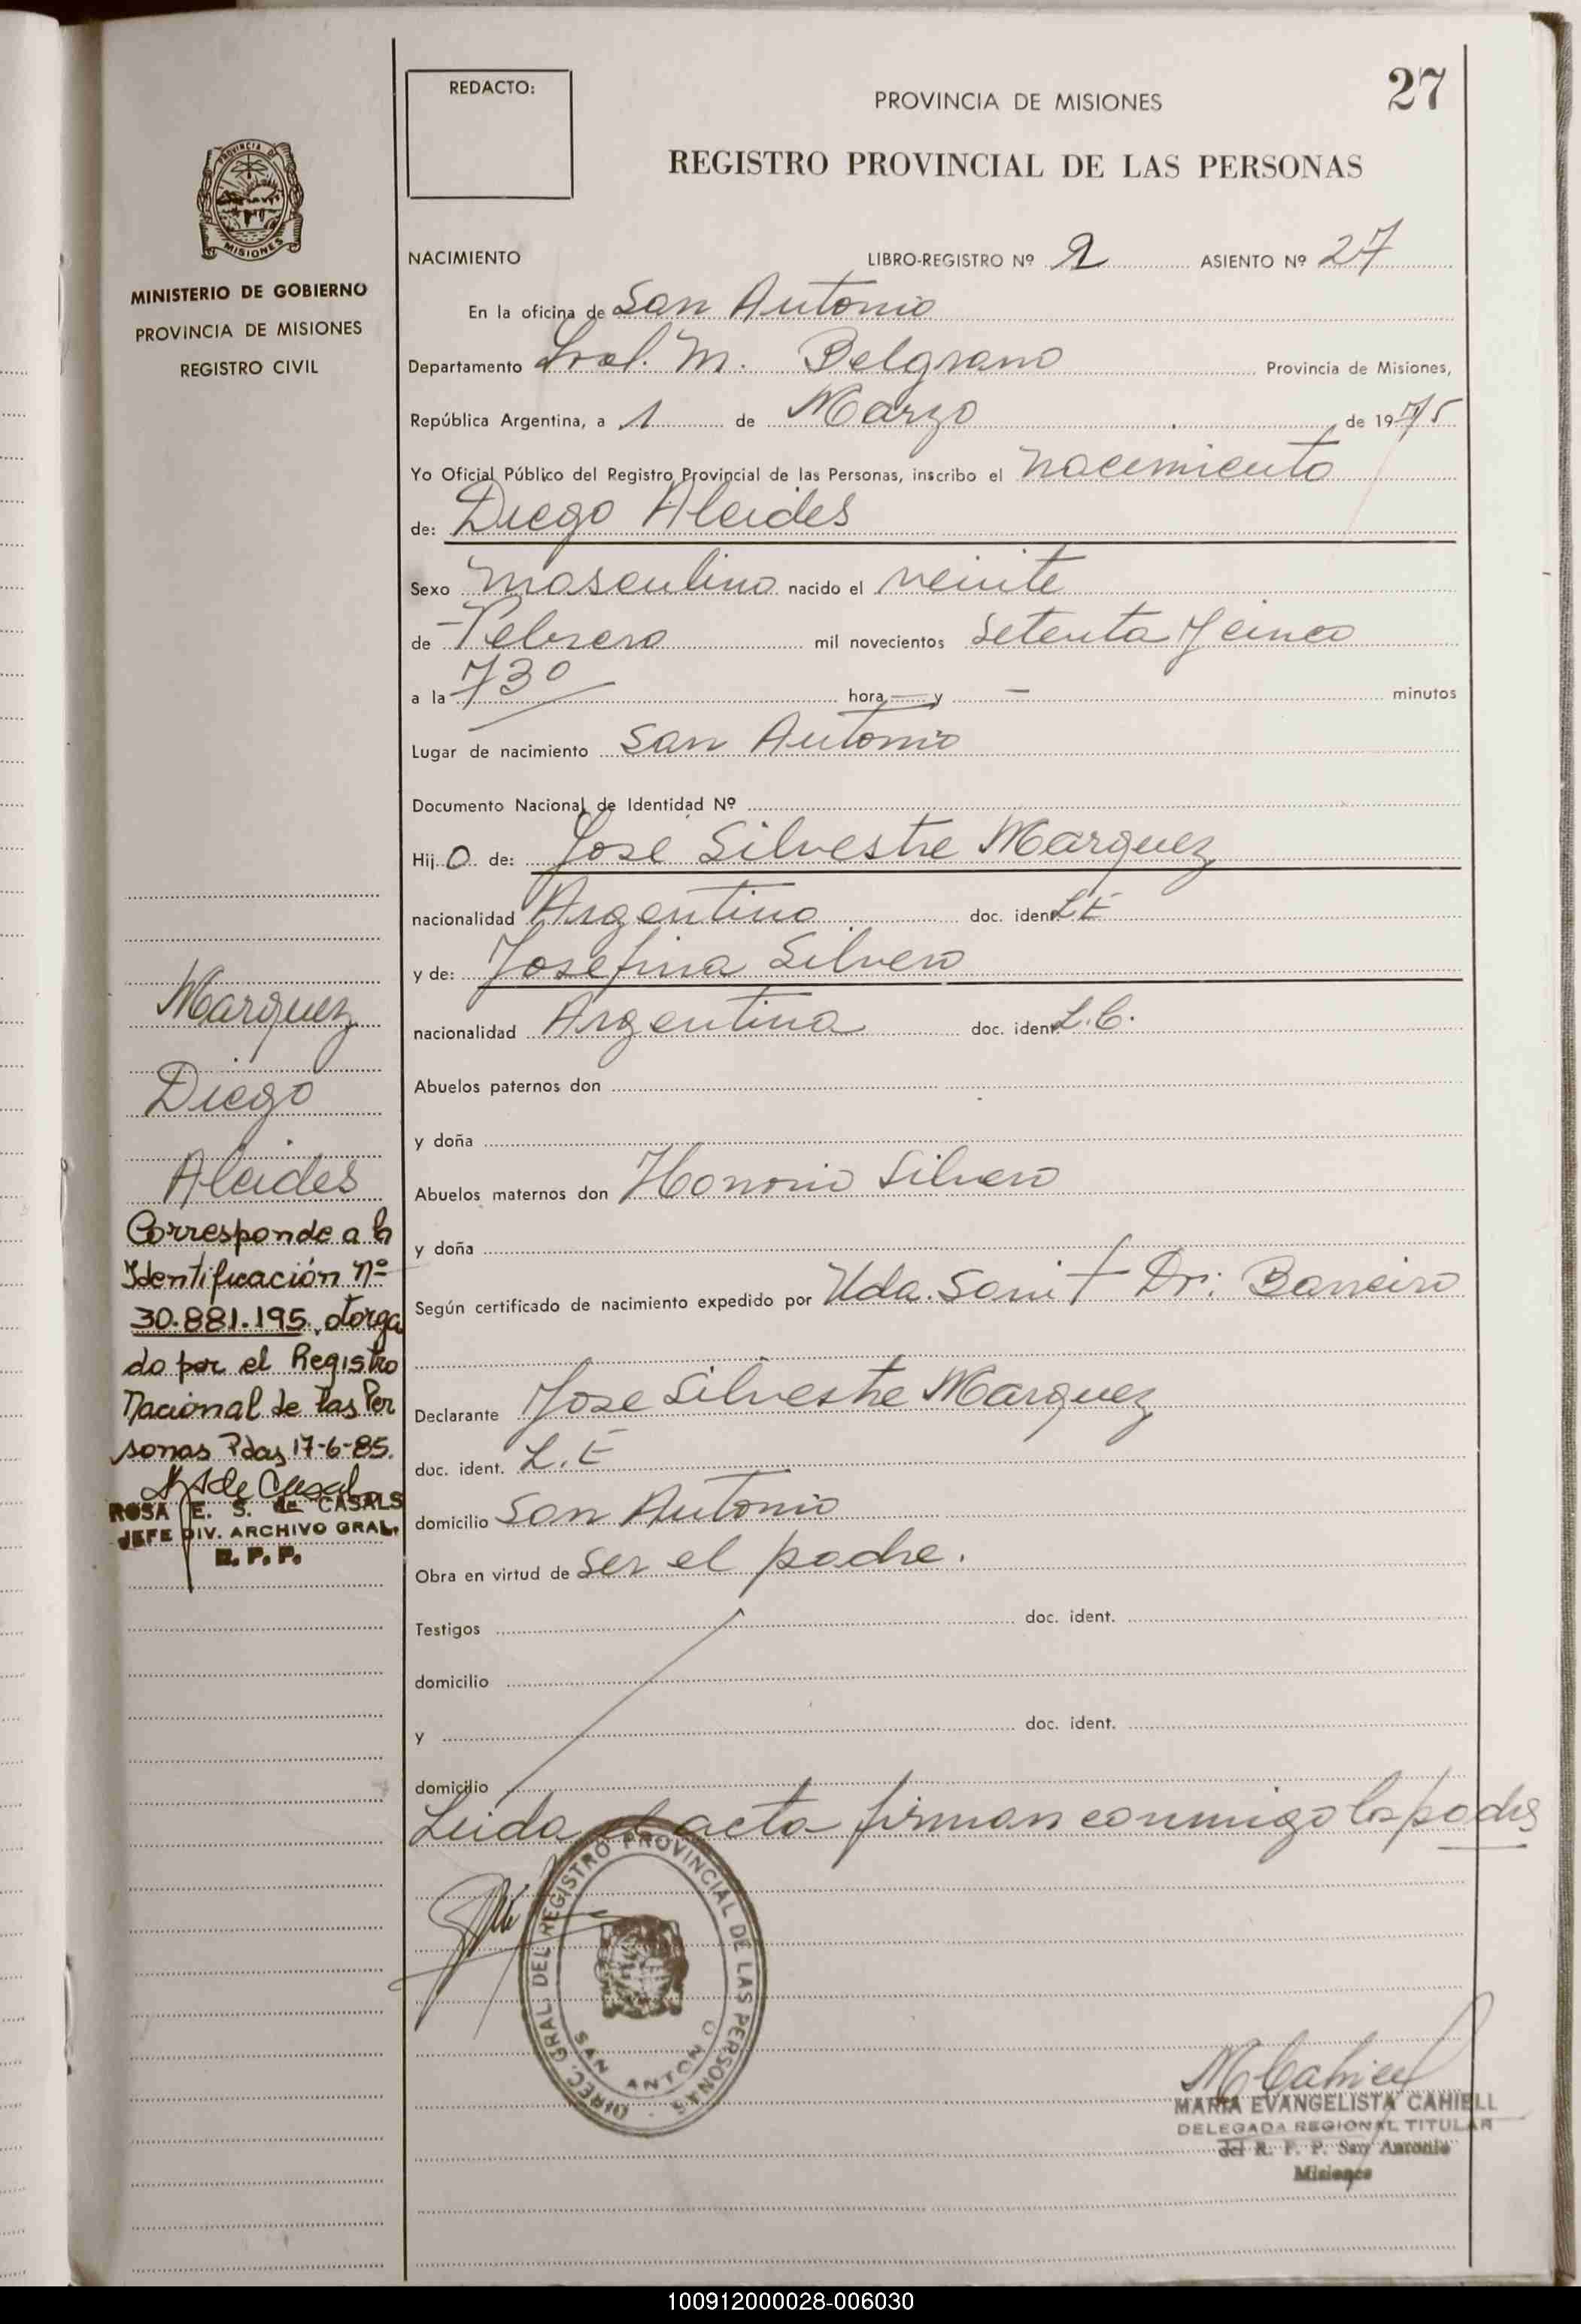 27
REDACTO:
PROVINCIA DE MISIONES
REGISTRO PROVINCIAL DE LAS PERSONAS
PROVINCIA DE
MISIONES
MINISTERIO DE GOBIERNO
PROVINCIA DE MISIONES
REGISTRO CIVIL
NACIMIENTO LIBRO-REGISTRO Nº 2 ASIENTO Nº 27
En la oficina de San Antonio
Departamento Gral. M. Belgrano Provincia de Misiones,
República Argentina, a 1 de Marzo de 1975
Yo Oficial Público del Registro Provincial de las Personas, inscribo el nacimiento
de: Diego Alcides
Sexo masculino nacido el veinte
de Febrero mil novecientos setenta y cinco
a la 730 hora — y — minutos
Lugar de nacimiento San Antonio
Documento Nacional de Identidad Nº
Hij o de: Jose Silvestre Marquez
nacionalidad Argentino doc. ident L.E
y de: Josefina Silvero
nacionalidad Argentina doc. ident L.C.
Abuelos paternos don
y doña
Abuelos maternos don Honorio Silvero
y doña
Según certificado de nacimiento expedido por Uda. Sanit Dr: Barreiro
Declarante Jose Silvestre Marquez
doc. ident. L.E
domicilio San Antonio
Obra en virtud de ser el padre.
Testigos doc. ident.
domicilio
y doc. ident.
domicilio
Leida el acta firman conmigo los padres
Marquez
Diego
Alcides
Corresponde a la
Identificación nº
30.881.195, otorga
do por el Registro
Nacional de las Per
sonas Pdas, 17-6-85.
ROSA E. S. de CASALS
JEFE DIV. ARCHIVO GRAL.
R. P. P.
DIREC. GRAL. DEL REGISTRO PROVINCIAL DE LAS PERSONAS
SAN ANTONIO
M Cahiell
MARIA EVANGELISTA CAHIELL
DELEGADA REGIONAL TITULAR
del R. P. P. San Antonio
Misiones
100912000028-006030